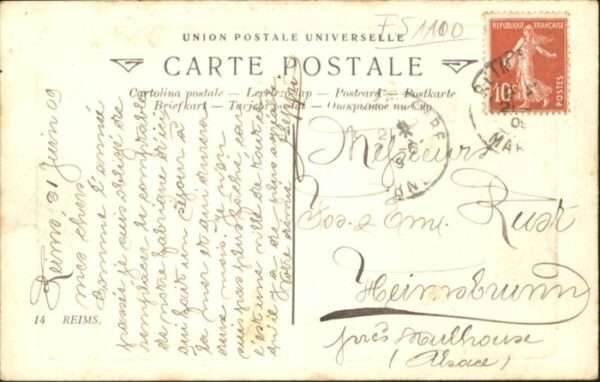 FS 1100
UNION POSTALE UNIVERSELLE
CARTE POSTALE
Cartolina postale — Levelező-Lap — Postcard — Postkarte
Briefkart — Tarjeta postal — Открытое письмо
RÉPUBLIQUE FRANÇAISE
10c
POSTES
Reims 21 juin 09
mes chers
Comme l'année
passée je suis obligé de
remplacer le comptable
de notre fabrique d'ici
qui fait un séjour à
la mer et qui durera
deux mois. Je n'en
suis pas plus fâché car
c'est une ville de tout ce
qu'il y a de plus
Messieurs
Jos. & Eml. Rust
Heimsbrunn
près Mulhouse
(Alsace)
14 REIMS.